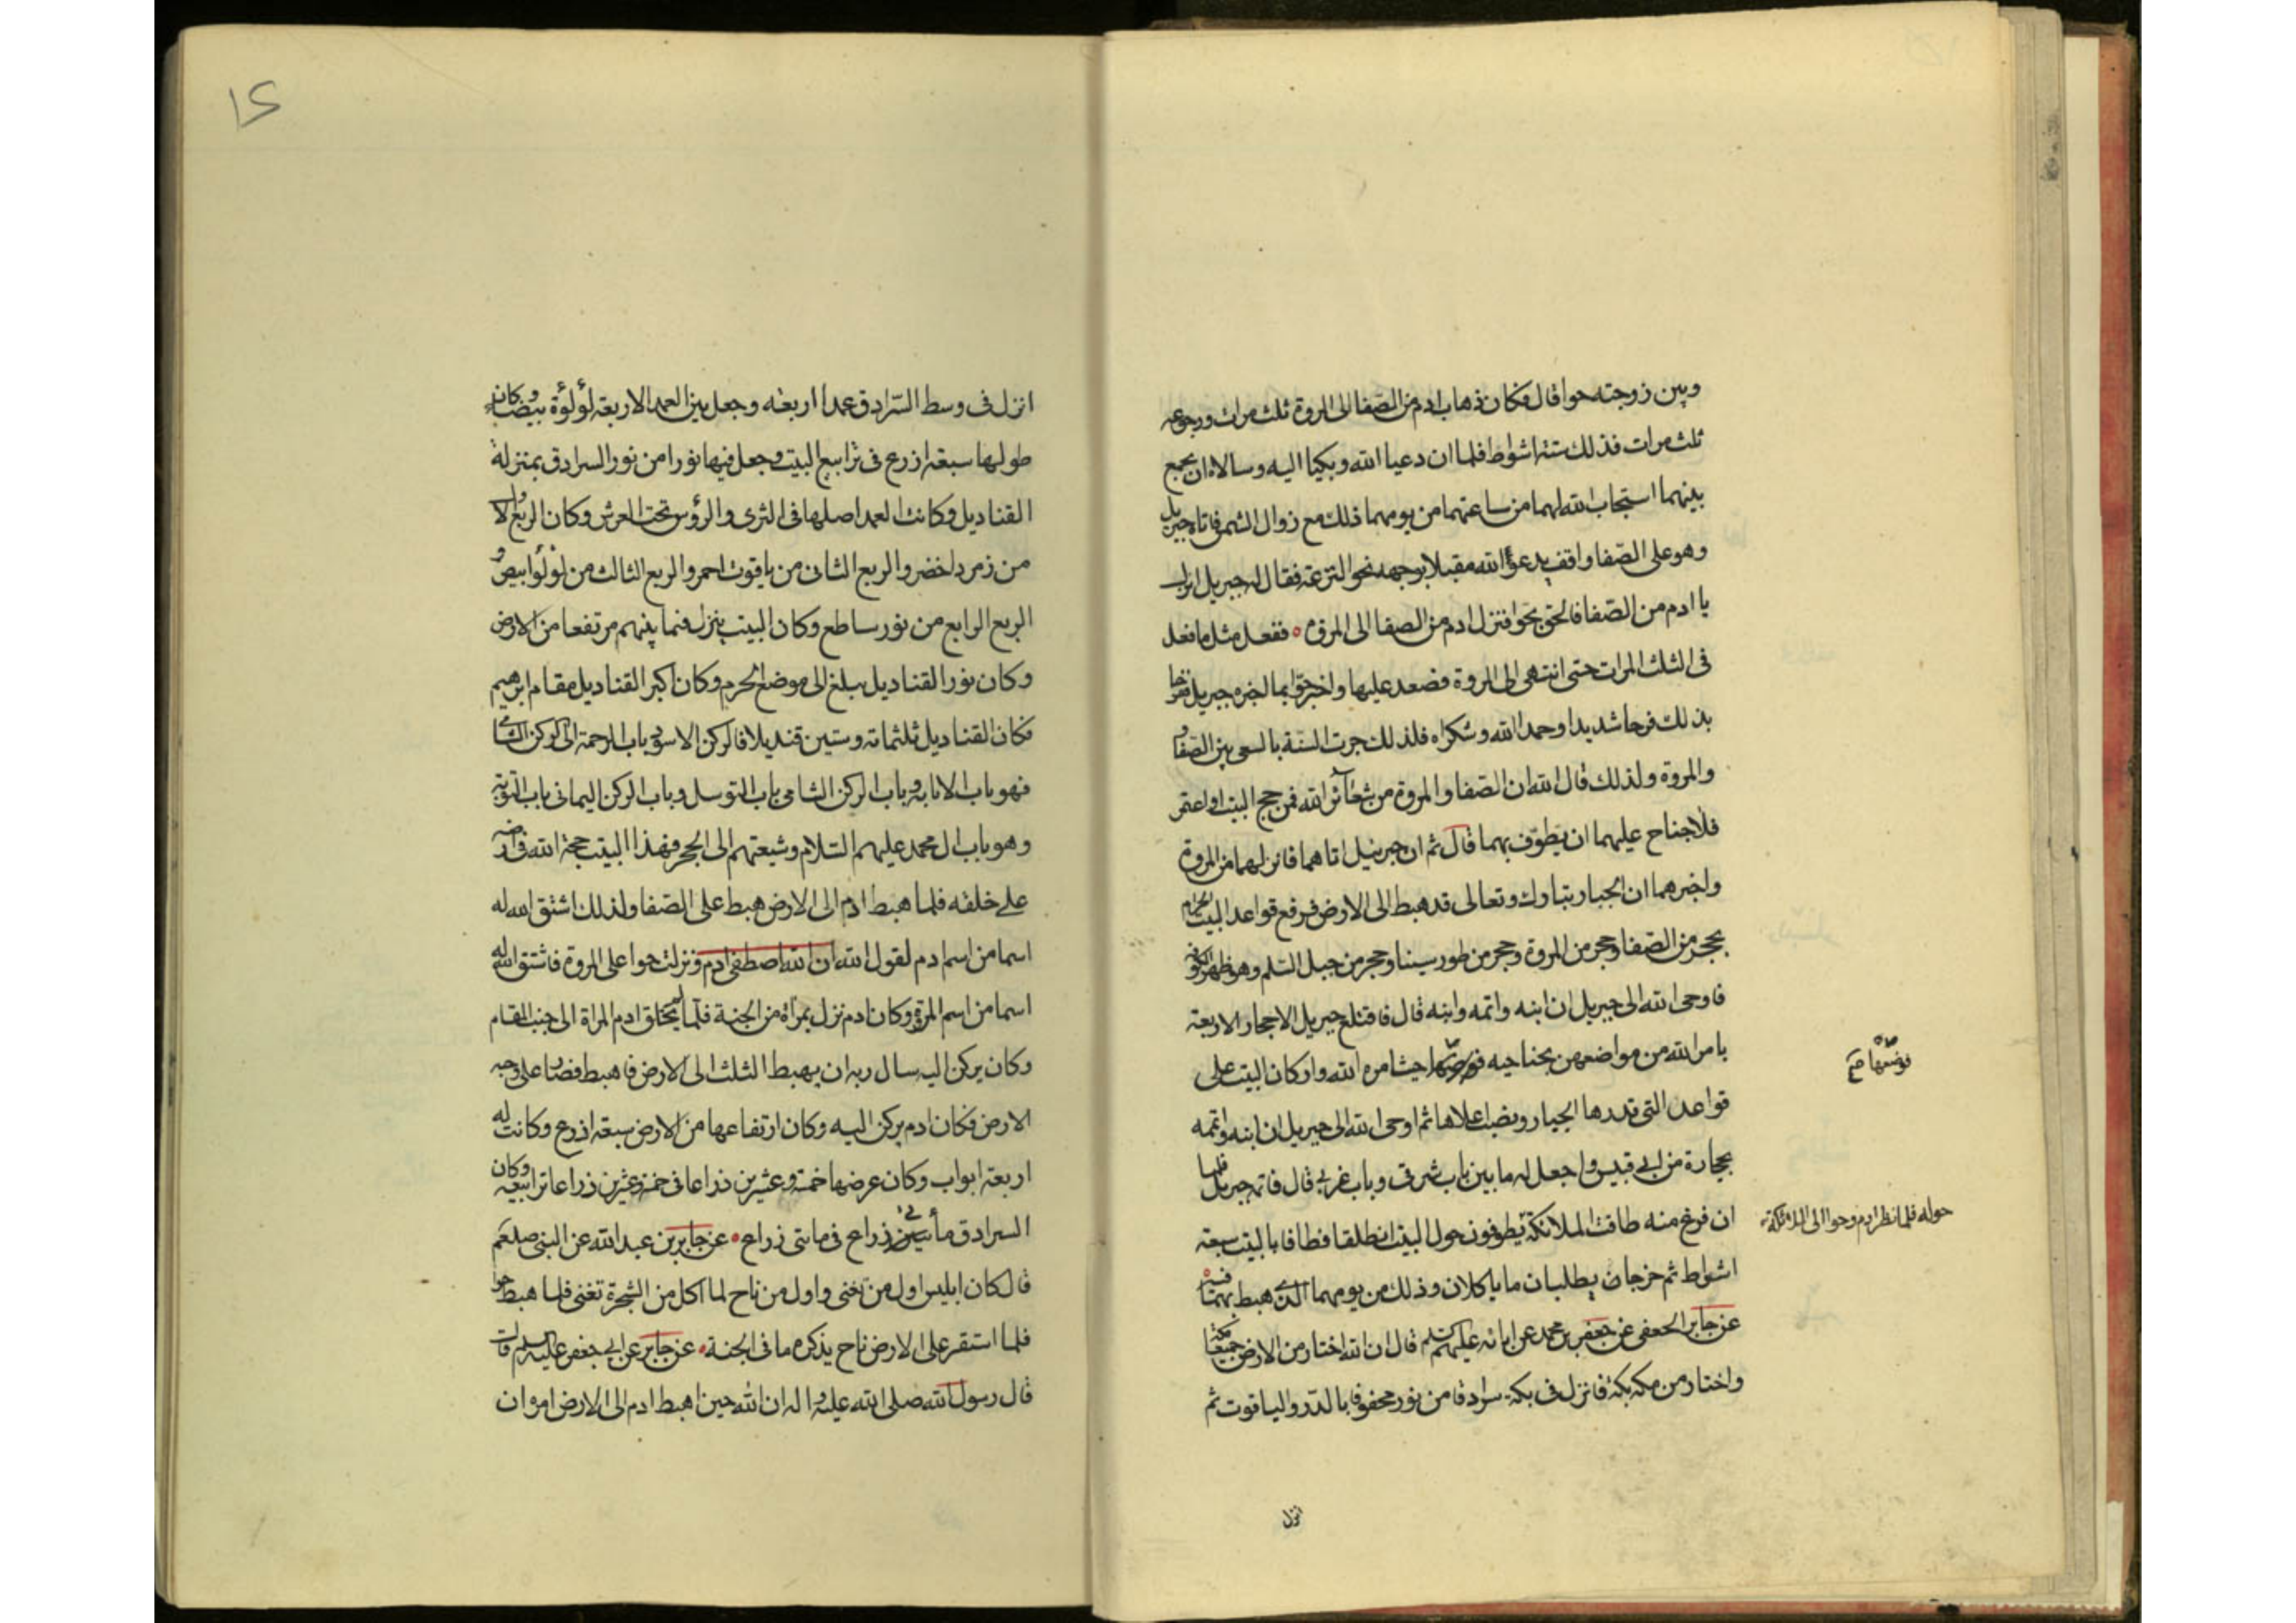 وبين زوجته حوا قال فكان ذهاب ادم من الصفا الى المروة ثلث مرات ورجوعه
ثلث مرات فذلك ستة اشواط فلما ان دعيا الله وبكيا اليه وسالاه ان يجمع
بينهما استجاب الله لهما من ساعتهما من يومهما ذلك مع زوال الشمس فاتاه جبريل
وهو على الصفا واقف يدعو الله مقبلا بوجهه نحو الترعة فقال له جبريل انزل
يا ادم من الصفا فالحق بحوا فنزل ادم من الصفا الى المروة ففعل مثل ما فعل
فى الثلث المرات حتى انتهى الى المروة فصعد عليها واخبر حوا بما اخبره جبريل ففرحا
بذلك فرحا شديدا وحمدا الله وشكراه فلذلك جرت السنة بالسعى بين الصفا و
والمروة ولذلك قال الله ان الصفا والمروة من شعائر الله فمن حج البيت او اعتمر
فلا جناح عليهما ان يطوف بهما قال ثم ان جبرئيل اتاهما فانزلهما من المروة
واخبرهما ان الجبار تبارك وتعالى قد هبط الى الارض فرفع قواعد البيت الحرام
بحجر من الصفا وحجر من المروة وحجر من طور سينا وحجر من جبل السلم وهو ظهر الكوفه
فاوحى الله الى جبريل ان ابنه واتمه وابنه قال فاقتلع جبريل الاحجار الاربعة
بامر الله من مواضعهن بجناحيه فوضعها حيث امره الله واركان البيت على
قواعد التى قدرها الجبار ونصب اعلاها ثم اوحى الله الى جبريل ان ابنه واتمه
بحجارة من ابى قبيس واجعل له ما بين باب شرقى وباب غربى قال فاتمه جبريل فلما
ان فرغ منه طافت الملائكة يطوفون حول البيت انطلقا فطافا بالبيت سبعة
اشواط ثم خرجا يطلبان ما ياكلان وذلك من يومهما الذى هبط بهما فيه
عن جابر الجعفى عن جعفر بن محمد عن ابائه عليهم السلم قال ان الله اختار من الارض جميعا مكة
واختار من مكه بكة فانزل فى بكة سرادقا من نور محفوفا بالدر والياقوت ثم
نوضعها صح
حوله فلما نظر ادم وحوا الى الملائكة
انزل
انزل فى وسط السرادق عمدا اربعه وجعل بين العمد الاربعة لؤلؤة بيضا وكان
طولها سبعة اذرع فى ترابيع البيت وجعل فيها نورا من نور السرادق بمنزلة
القناديل وكانت العمد اصلها فى الثرى والرؤس تحت العرش وكان الربع الاول
من زمرد اخضر والربع الثانى من ياقوت احمر والربع الثالث من لؤلؤ ابيض و
الربع الرابع من نور ساطع وكان البيت ينزل فيما بينهم مرتفعا من الارض
وكان نور القناديل يبلغ الى موضع الحرم وكان اكبر القناديل مقام ابرهيم
فكان القناديل ثلثمائة وستين قنديلا فالركن الاسود باب الرحمة الى الركن الشامى
فهو باب الانابة وباب الركن الشامى باب التوسل وباب الركن اليمانى باب التوبة
وهو باب ال محمد عليهم السلام وشيعتهم الى الحجر فهذا البيت حجة الله فى ارضه
على خلقه فلما هبط ادم الى الارض هبط على الصفا ولذلك اشتق الله له
اسما من اسم ادم لقول الله ان الله اصطفى ادم ونزلت حوا على المروة فاشتق الله له
اسما من اسم المرة وكان ادم نزل بمرأة من الجنة فلما لم يخلق ادم المراة الى جنب المقام
وكان يركن اليه سال ربه ان يهبط الثلث الى الارض فاهبط فصار على وجه
الارض فكان ادم يركن اليه وكان ارتفاعها من الارض سبعة اذرع وكانت له
اربعة ابواب وكان عرضها خمسة وعشرين ذراعا فى خمسة وعشرين ذراعا ترابيعه وكان
السرادق مأتى ذراع فى مائتى ذراع عن جابر بن عبد الله عن النبى صلعم
قال كان ابليس اول من تغنى واول من ناح لما اكل من الشجرة تغنى فلما هبط حوا
فلما استقر على الارض ناح يذكره ما فى الجنة عن جابر عن ابى جعفر عليه السلم قال
قال رسول الله صلى الله عليه واله ان الله حين اهبط ادم الى الارض امره ان